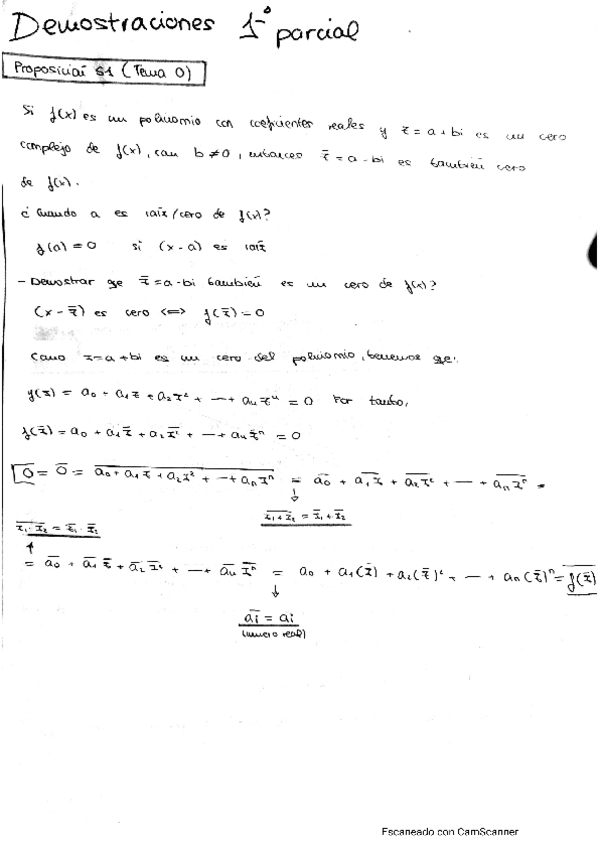 Demostraciones 1º parcial
Proposición S1 (Tema 0)
Si f(x) es un polinomio con coeficientes reales y z = a + bi es un cero
complejo de f(x), con b ≠ 0, entonces z̅ = a - bi es también cero
de f(x).
¿Cuando a es raíz/cero de f(x)?
f(a) = 0 si (x - a) es raíz
- Demostrar que z̅ = a - bi también es un cero de f(x)?
(x - z̅) es cero <=> f(z̅) = 0
Como z = a + bi es un cero del polinomio, tenemos que:
f(z) = a₀ + a₁z + a₂z² + --- + aₙzⁿ = 0 Por tanto,
f(z̅) = a₀ + a₁z̅ + a₂z̅² + --- + aₙz̅ⁿ = 0
0̅ = 0̅ = \overline{a₀ + a₁z + a₂z² + --- + aₙzⁿ} = \overline{a₀} + \overline{a₁z} + \overline{a₂z²} + --- + \overline{aₙzⁿ} =
↓
\overline{z₁ · z₂} = \overline{z₁} · \overline{z₂} \overline{z₁ + z₂} = \overline{z₁} + \overline{z₂}
↑
= \overline{a₀} + \overline{a₁} \overline{z} + \overline{a₂} \overline{z²} + --- + \overline{aₙ} \overline{zⁿ} = a₀ + a₁(z̅) + a₂(z̅)² + --- + aₙ(z̅)ⁿ = f(z̅)
↓
\overline{ai} = ai
(número real)
Escaneado con CamScanner